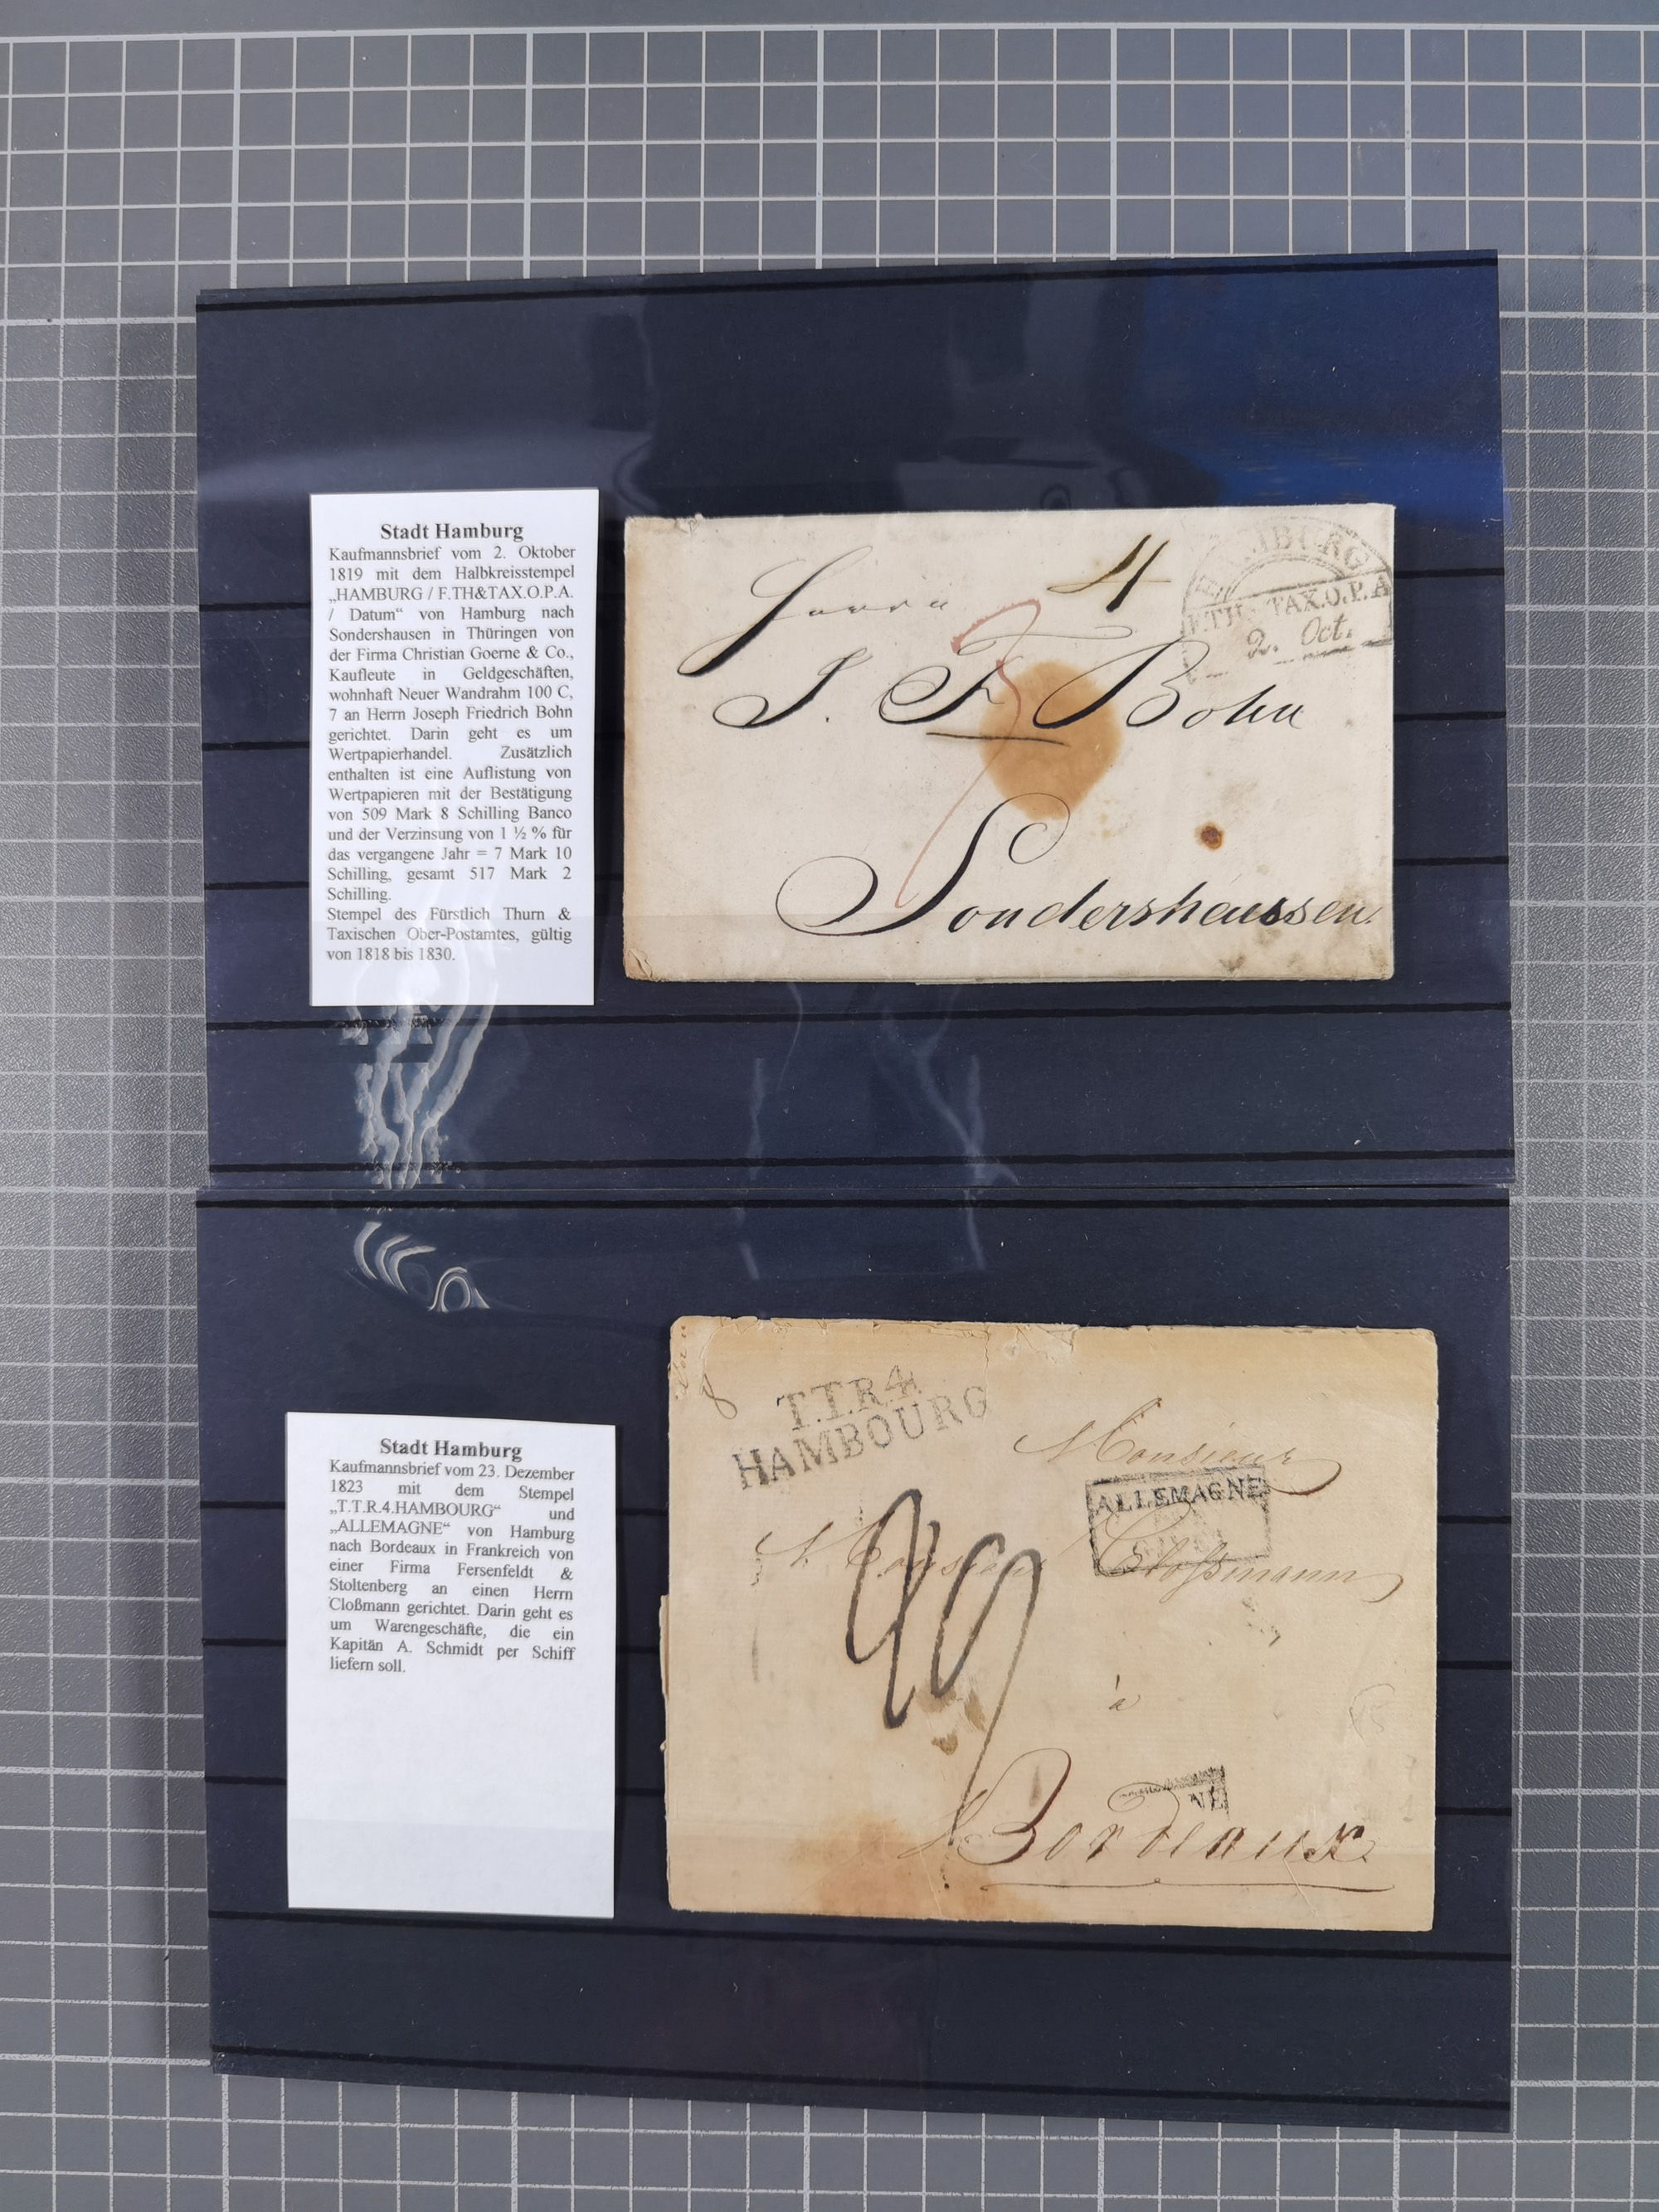 Stadt Hamburg
Kaufmannsbrief vom 2. Oktober
1819 mit dem Halbkreisstempel
„HAMBURG / F.TH&TAX.O.P.A.
/ Datum“ von Hamburg nach
Sondershausen in Thüringen von
der Firma Christian Goerne & Co.,
Kaufleute in Geldgeschäften,
wohnhaft Neuer Wandrahm 100 C,
7 an Herrn Joseph Friedrich Bohn
gerichtet. Darin geht es um
Wertpapierhandel. Zusätzlich
enthalten ist eine Auflistung von
Wertpapieren mit der Bestätigung
von 509 Mark 8 Schilling Banco
und der Verzinsung von 1 ½ % für
das vergangene Jahr = 7 Mark 10
Schilling, gesamt 517 Mark 2
Schilling.
Stempel des Fürstlich Thurn &
Taxischen Ober-Postamtes, gültig
von 1818 bis 1830.
4
HAMBURG
F.TH. TAX.O.P.A
2. Oct.
Herrn
J. F. Bohn
Sondershaussen.
Stadt Hamburg
Kaufmannsbrief vom 23. Dezember
1823 mit dem Stempel
„T.T.R.4.HAMBOURG“ und
„ALLEMAGNE“ von Hamburg
nach Bordeaux in Frankreich von
einer Firma Fersenfeldt &
Stoltenberg an einen Herrn
Cloßmann gerichtet. Darin geht es
um Warengeschäfte, die ein
Kapitän A. Schmidt per Schiff
liefern soll.
T.T.R.4.
HAMBOURG
Monsieur
ALLEMAGNE
Cloßmann
à
NE
Bordeaux